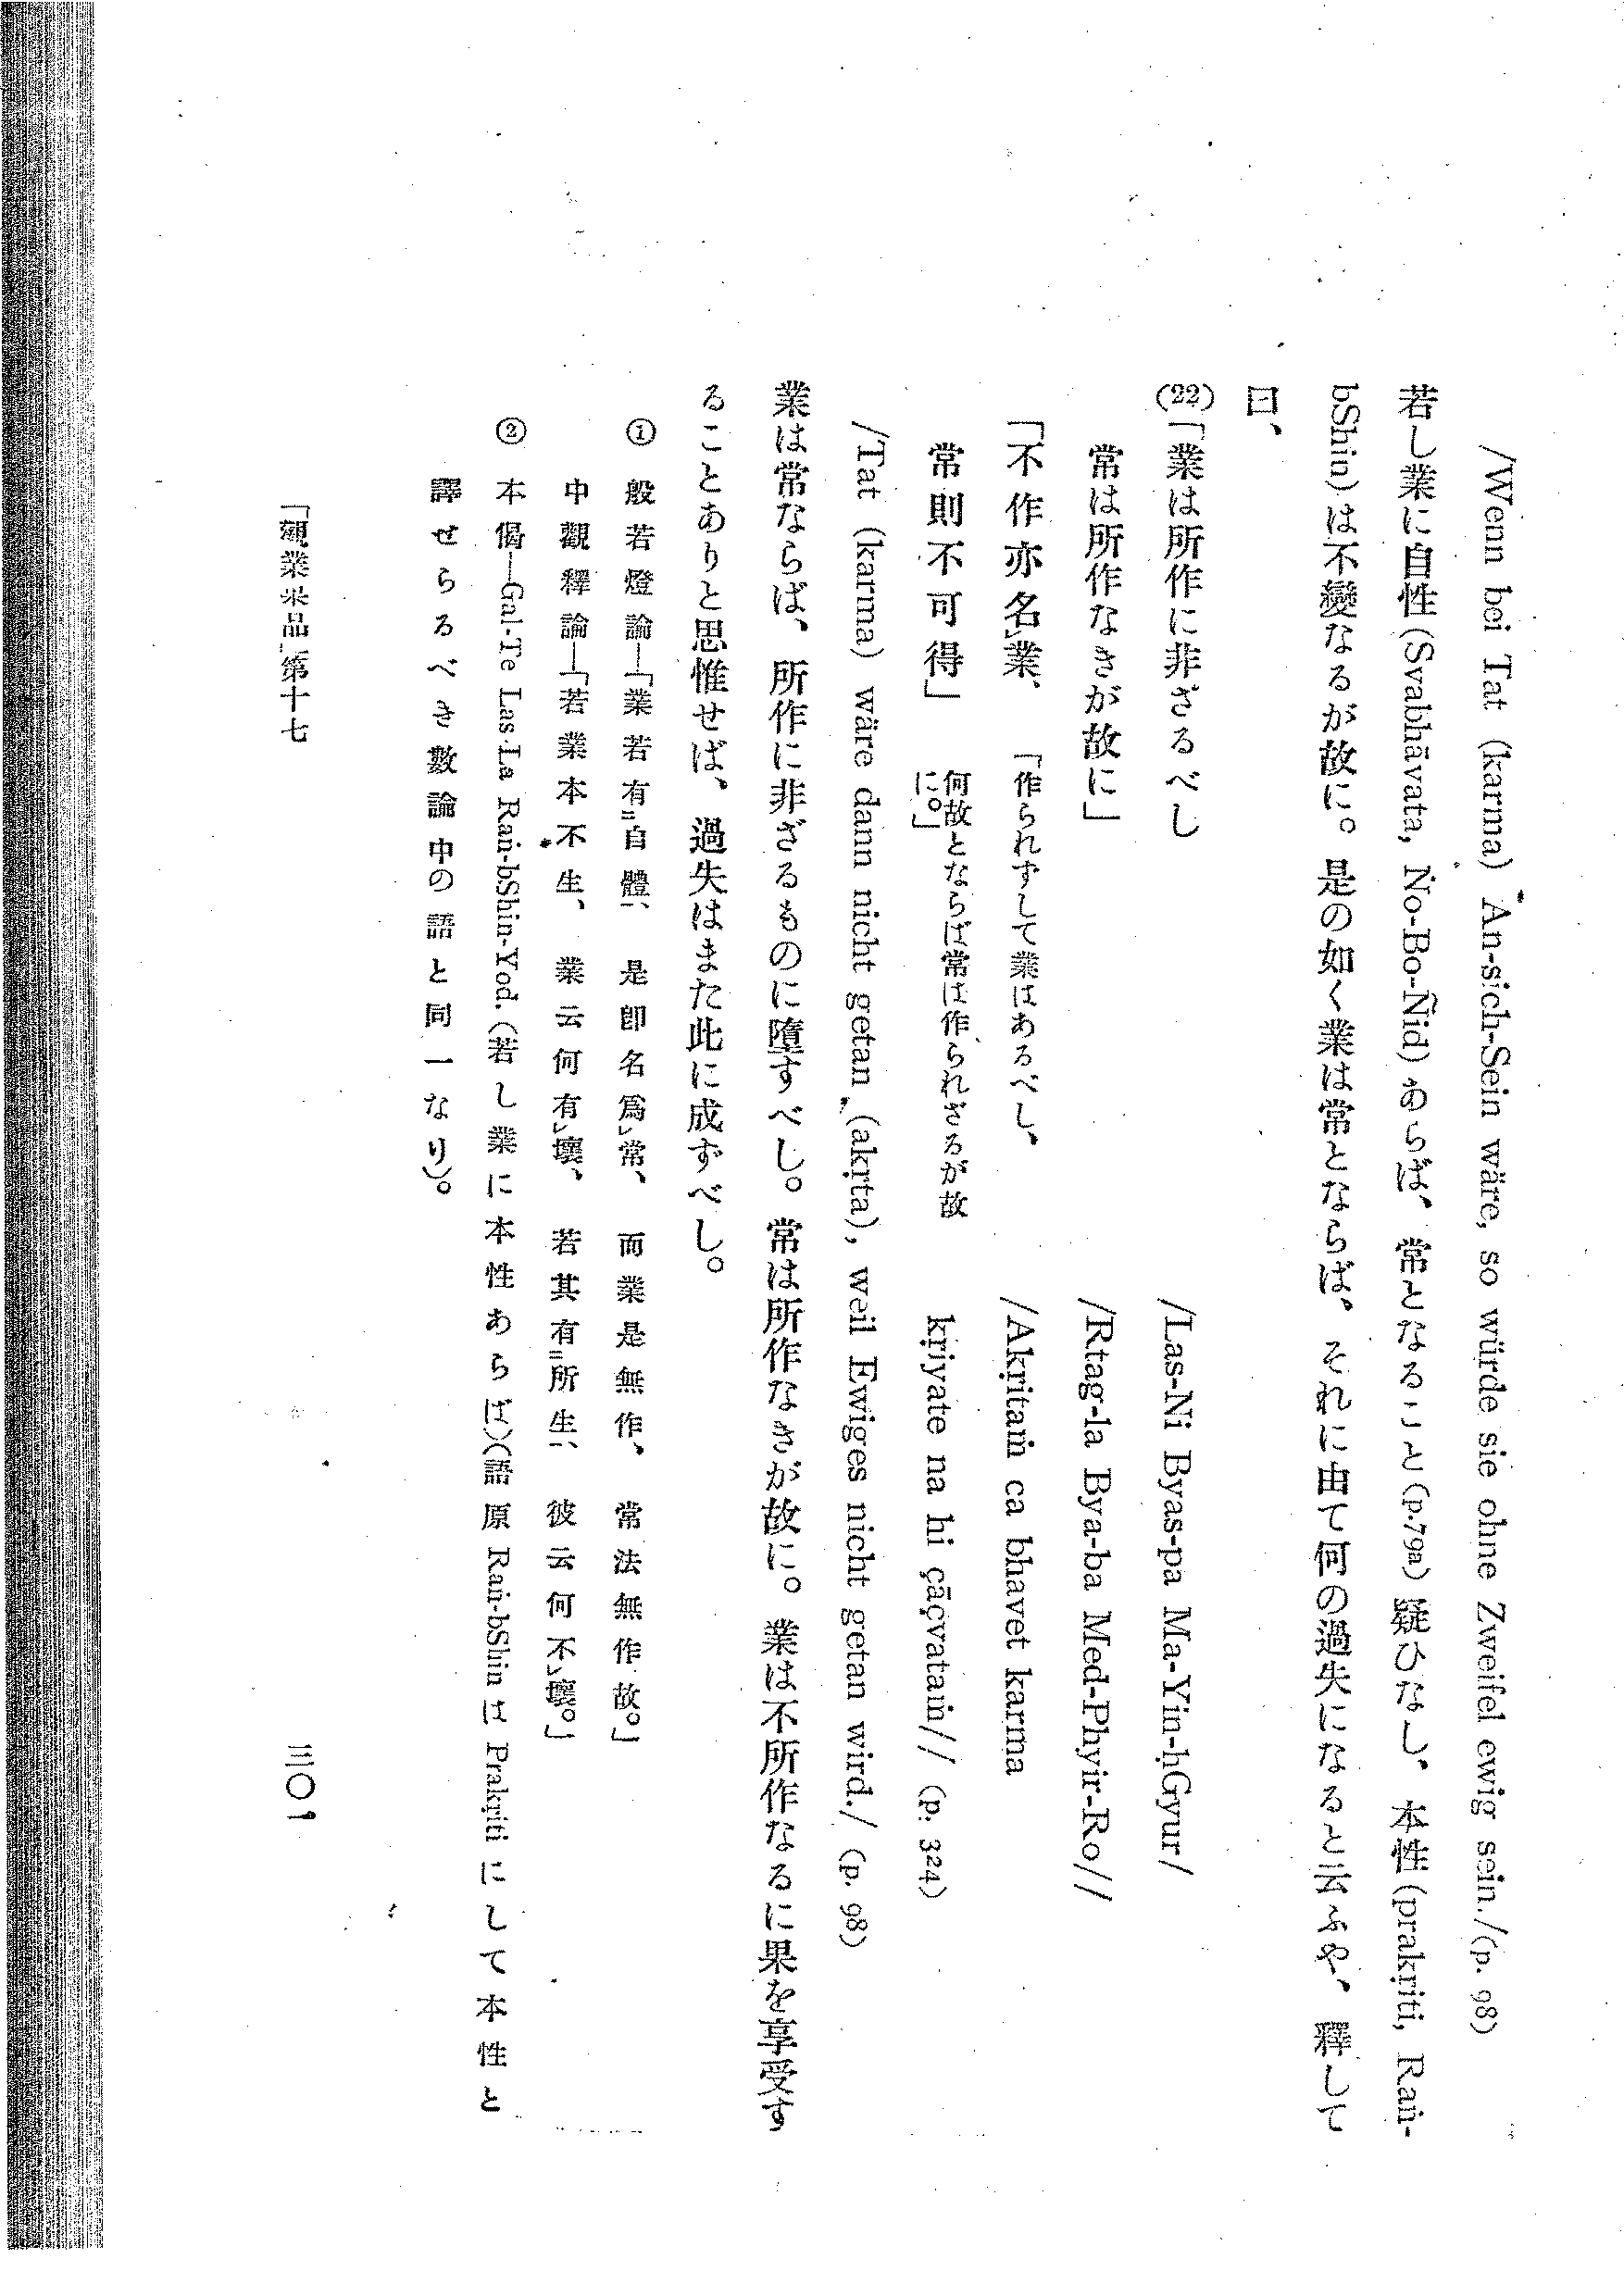 /Wenn bei Tat (karma) An-sich-Sein wäre, so würde sie ohne Zweifel ewig sein./(p. 98)
若し業に自性(Svabhāvata, Ṅo-Bo-Ñid)あらば、常となること(p.79a)疑ひなし、本性(prakṛiti, Raṅ-
bShin)は不變なるが故に。是の如く業は常とならば、それに由て何の過失になると云ふや、釋して
曰、
(22)「業は所作に非ざるべし
/Las-Ni Byas-pa Ma-Yin-ḥGyur/
常は所作なきが故に」
/Rtag-la Bya-ba Med-Phyir-Ro//
「不作亦名業、
「作られずして業はあるべし、
/Akṛitaṁ ca bhavet karma
常則不可得」
何故とならば常は作られざるが故
に。」
kṛiyate na hi çāçvataṁ// (p. 324)
/Tat (karma) wäre dann nicht getan (akṛta), weil Ewiges nicht getan wird./ (p. 98)
業は常ならば、所作に非ざるものに墮すべし。常は所作なきが故に。業は不所作なるに果を享受す
ることありと思惟せば、過失はまた此に成ずべし。
① 般若燈論—「業若有自體、是卽名爲常、而業是無作、常法無作故。」
中觀釋論—「若業本不生、業云何有壞、若其有所生、彼云何不壞。」
② 本偈—Gal-Te Las-La Raṅ-bShin-Yod.(若し業に本性あらば)(語原 Raṅ-bShin は Prakṛiti にして本性と
譯せらるべき數論中の語と同一なり)。
「觀業果品」第十七
三〇一